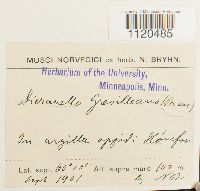 1120485
MUSCI NORVEGICI ex herb. N. BRYHN.
Herbarium of the University,
Minneapolis, Minn.
Dicranella Grevilleana
In argilla oppidi Hönefos
Lat. sept. 60° Alt. supra mare
Sept. 1901